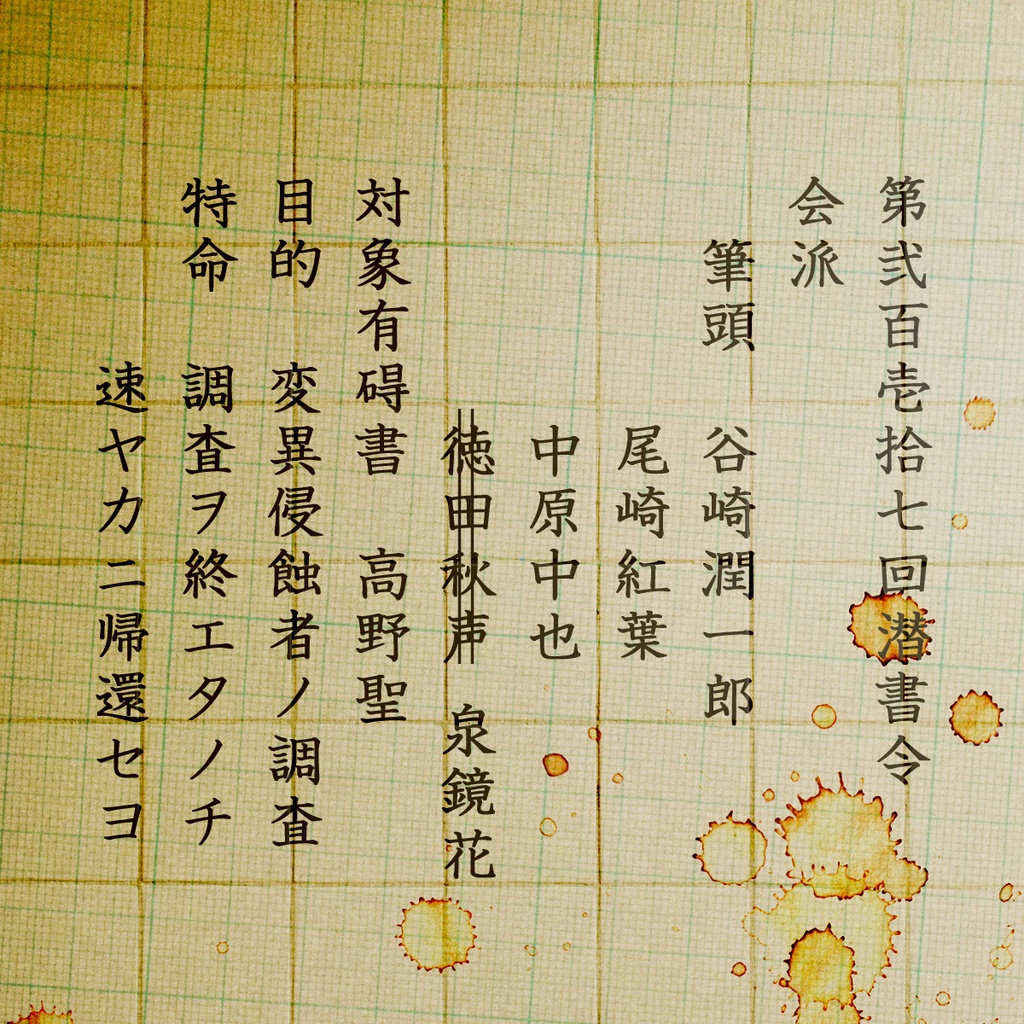 第弐百壱拾七回潜書令
会派
筆頭 谷崎潤一郎
尾崎紅葉
中原中也
徳田秋声 泉鏡花
対象有碍書 高野聖
目的 変異侵蝕者ノ調査
特命 調査ヲ終エタノチ
速ヤカニ帰還セヨ